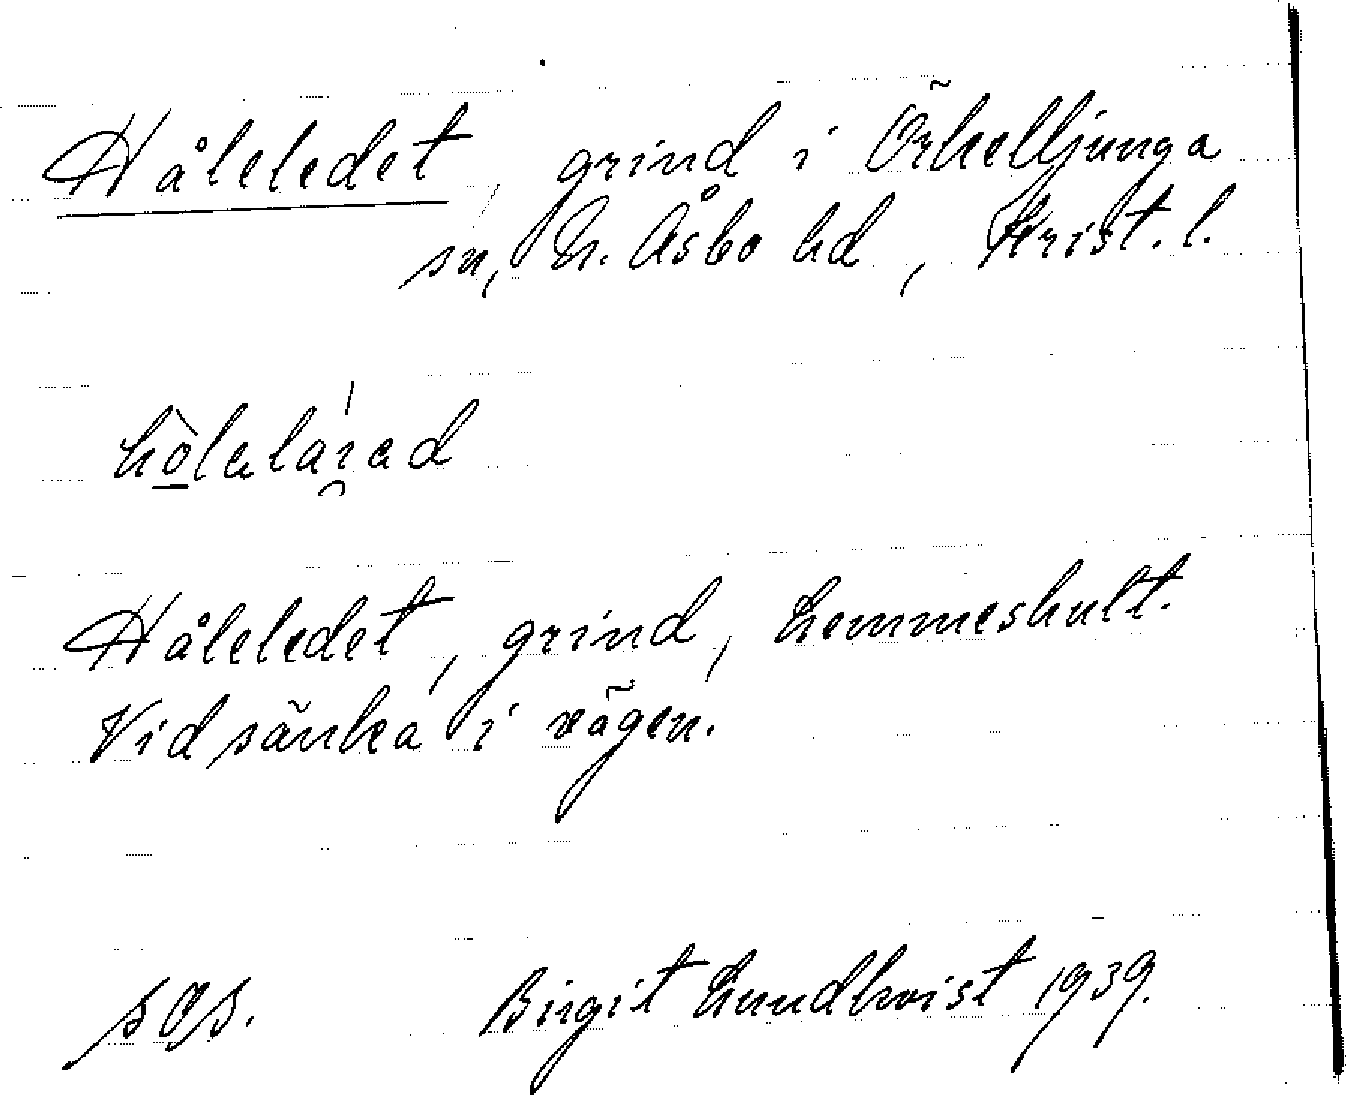 Håleledet, grind i Örkelljunga
sn, N. Åsbo hd, Krist. l.
Håleledet, grind, Lemmeshult.
Vid sänka i vägen.
Birgit Lundkvist 1939.